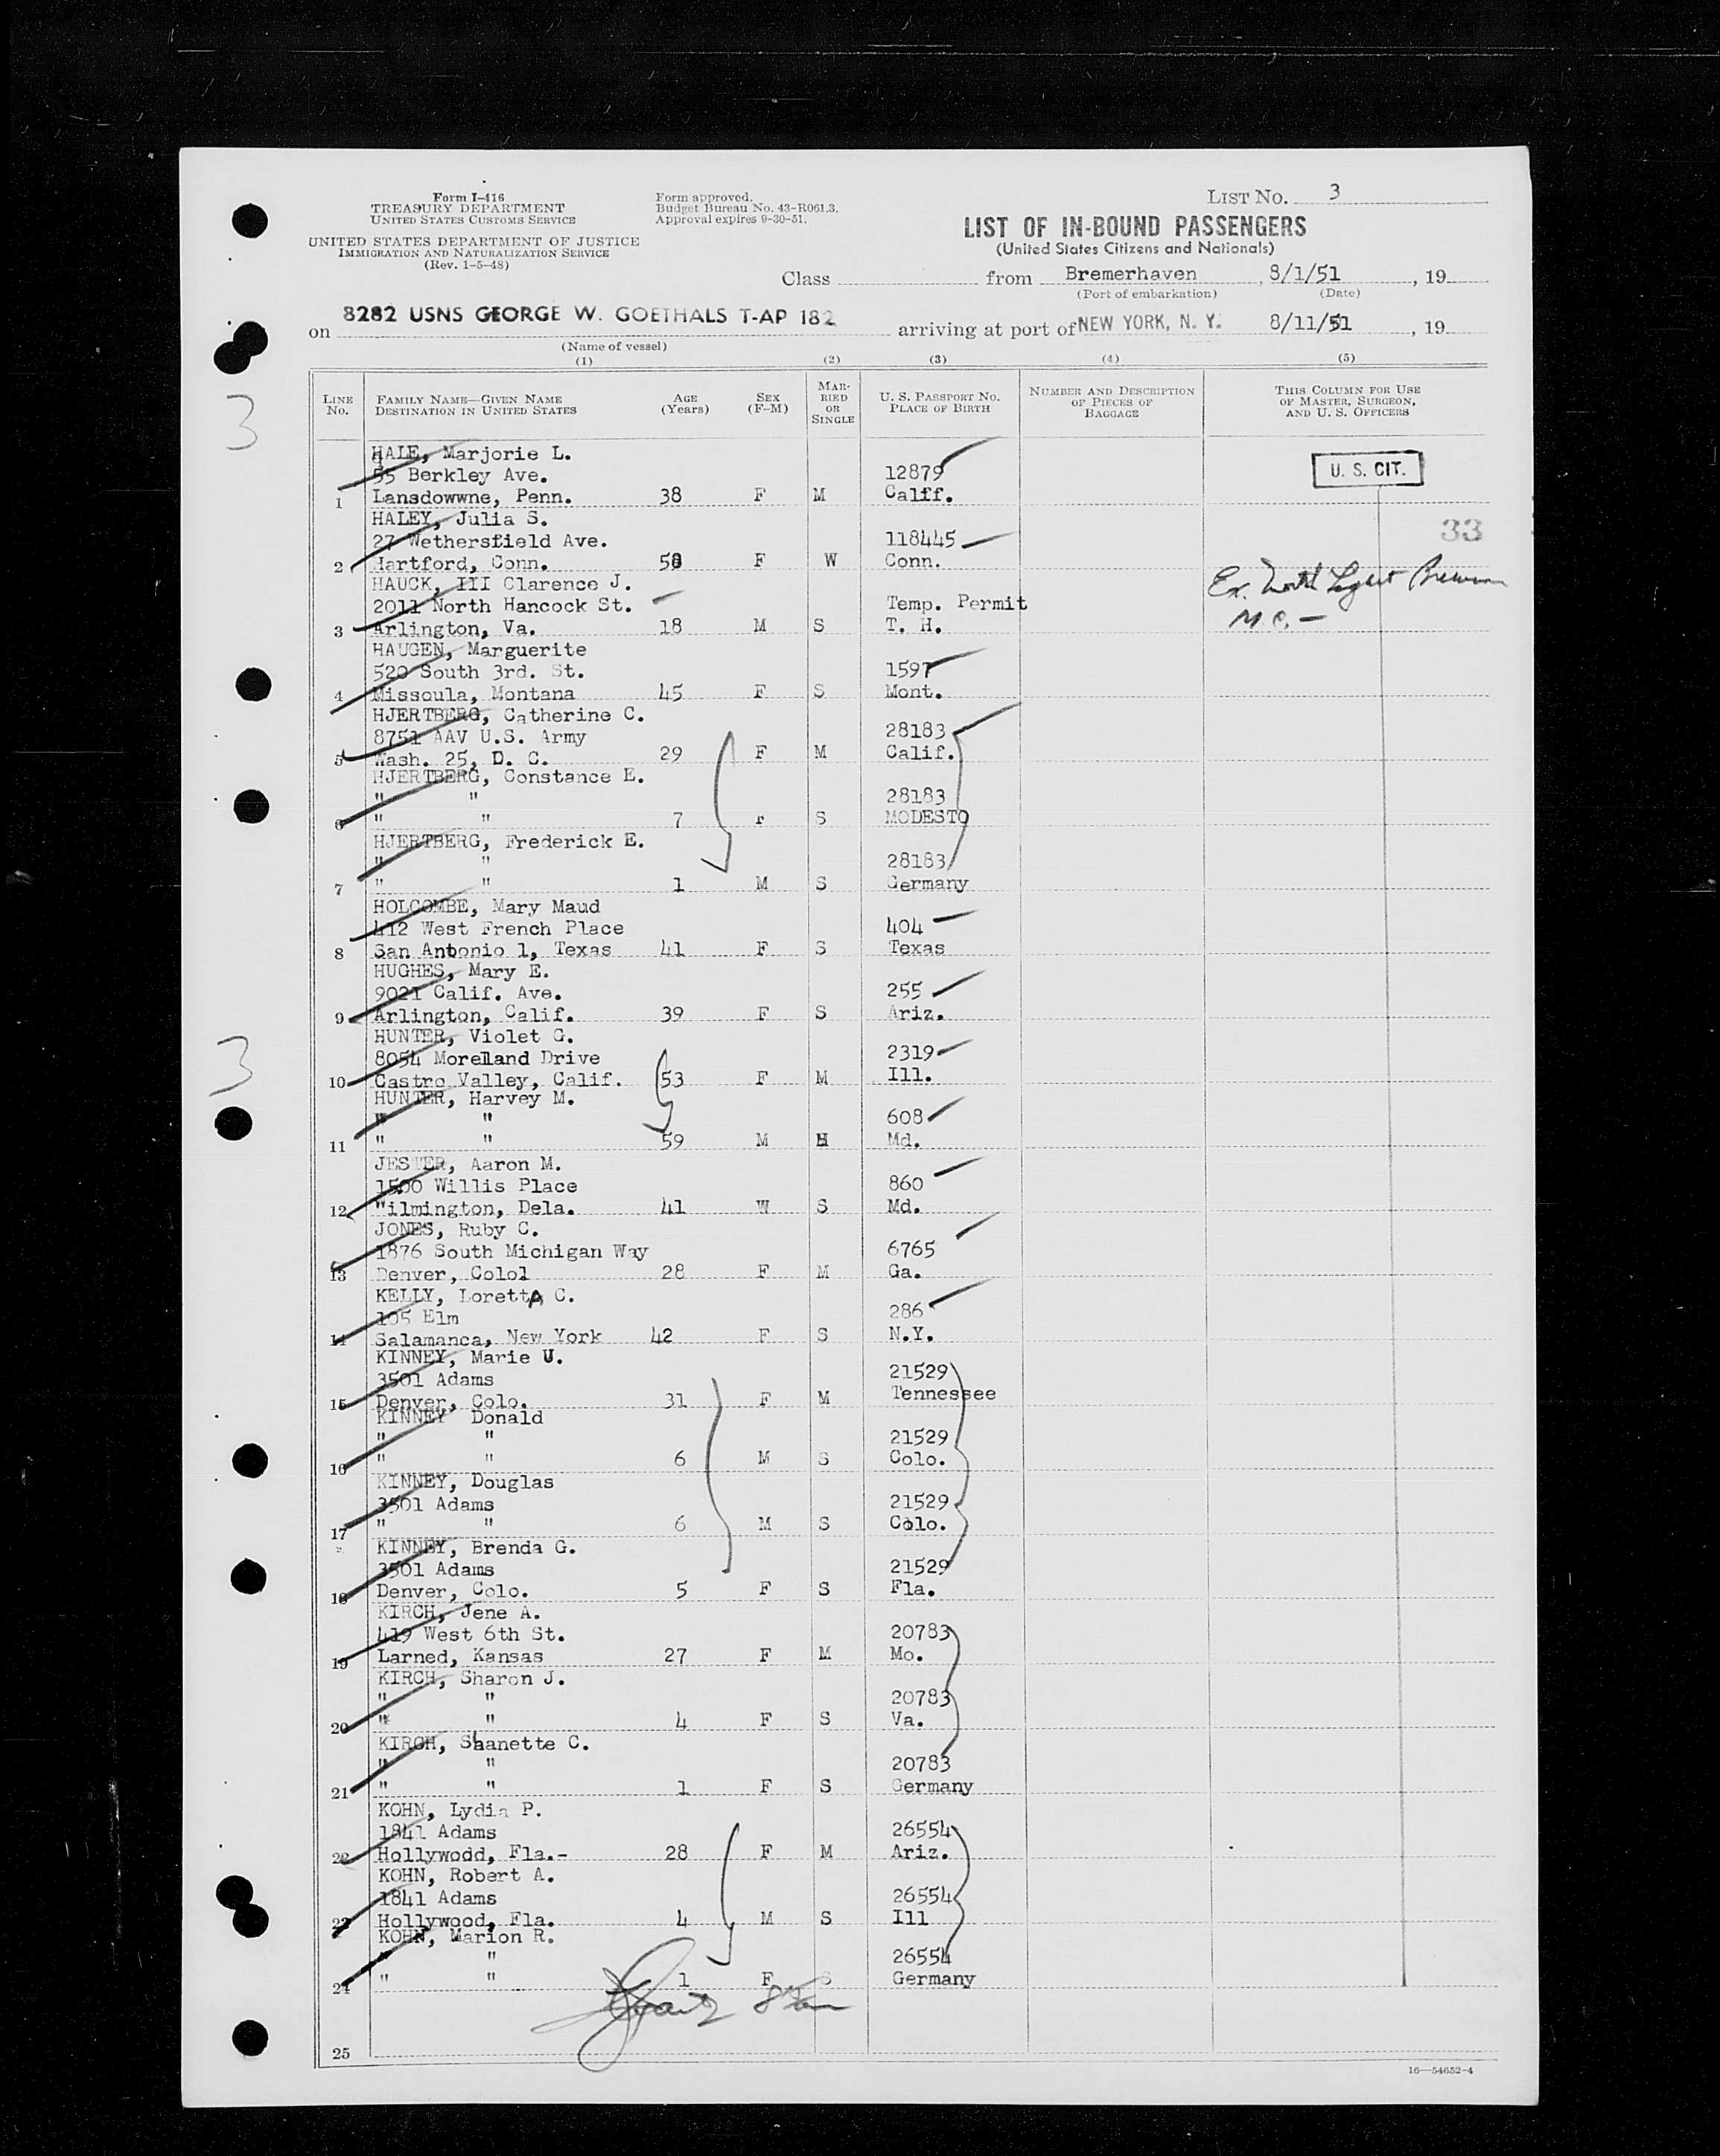 Form I-416
TREASURY DEPARTMENT
UNITED STATES CUSTOMS SERVICE
UNITED STATES DEPARTMENT OF JUSTICE
IMMIGRATION AND NATURALIZATION SERVICE
(Rev. 1-5-48)
Form approved.
Budget Bureau No. 43-R061.3.
Approval expires 9-30-51.
LIST NO. 3
LIST OF IN-BOUND PASSENGERS
(United States Citizens and Nationals)
Class from Bremerhaven, 8/1/51, 19
(Port of embarkation) (Date)
on 8282 USNS GEORGE W. GOETHALS T-AP 182 arriving at port of NEW YORK, N. Y. 8/11/51, 19
(Name of vessel)
(1) (2) (3) (4) (5)
LINE No. FAMILY NAME—GIVEN NAME DESTINATION IN UNITED STATES AGE (Years) SEX (F-M) MARRIED OR SINGLE U. S. PASSPORT NO. PLACE OF BIRTH NUMBER AND DESCRIPTION OF PIECES OF BAGGAGE THIS COLUMN FOR USE OF MASTER, SURGEON, AND U. S. OFFICERS
3
HALE, Marjorie L.
55 Berkley Ave. 12879 U. S. CIT.
1 Lansdowwne, Penn. 38 F M Calif.
HALEY, Julia S. 33
27 Wethersfield Ave. 118445
2 Hartford, Conn. 58 F W Conn.
HAUCK, III Clarence J.
2011 North Hancock St. Temp. Permit
3 Arlington, Va. 18 M S T. H.
HAUGEN, Marguerite
520 South 3rd. St. 1597
4 Missoula, Montana 45 F S Mont.
HJERTBERG, Catherine C.
8751 AAV U.S. Army 28183
5 Wash. 25, D. C. 29 F M Calif.
HJERTBERG, Constance E.
" " 28183
6 " " 7 F S MODESTO
HJERTBERG, Frederick E.
" " 28183
7 " " 1 M S Germany
HOLCOMBE, Mary Maud
412 West French Place 404
8 San Antonio 1, Texas 41 F S Texas
HUGHES, Mary E.
9021 Calif. Ave. 255
9 Arlington, Calif. 39 F S Ariz.
HUNTER, Violet G.
3
8054 Morelland Drive 2319
10 Castro Valley, Calif. 53 F M Ill.
HUNTER, Harvey M.
" " 608
11 " " 59 M M Md.
JESTER, Aaron M.
1500 Willis Place 860
12 Wilmington, Dela. 41 W S Md.
JONES, Ruby C.
1876 South Michigan Way 6765
13 Denver, Colol 28 F M Ga.
KELLY, LorettA C.
105 Elm 286
14 Salamanca, New York 42 F S N.Y.
KINNEY, Marie U.
3501 Adams 21529
15 Denver, Colo. 31 F M Tennessee
KINNEY Donald
" " 21529
16 " " 6 M S Colo.
KINNEY, Douglas
3501 Adams 21529
17 " " 6 M S Colo.
KINNEY, Brenda G.
3501 Adams 21529
18 Denver, Colo. 5 F S Fla.
KIRCH, Jene A.
419 West 6th St. 20783
19 Larned, Kansas 27 F M Mo.
KIRCH, Sharon J.
" " 20783
20 " " 4 F S Va.
KIRCH, Shanette C.
" " 20783
21 " " 1 F S Germany
KOHN, Lydia P.
1841 Adams 26554
22 Hollywodd, Fla.- 28 F M Ariz.
KOHN, Robert A.
1841 Adams 26554
23 Hollywood, Fla. 4 M S Ill
KOHN, Marion R.
" " 26554
24 " " 1 F S Germany
25
16—54652-4